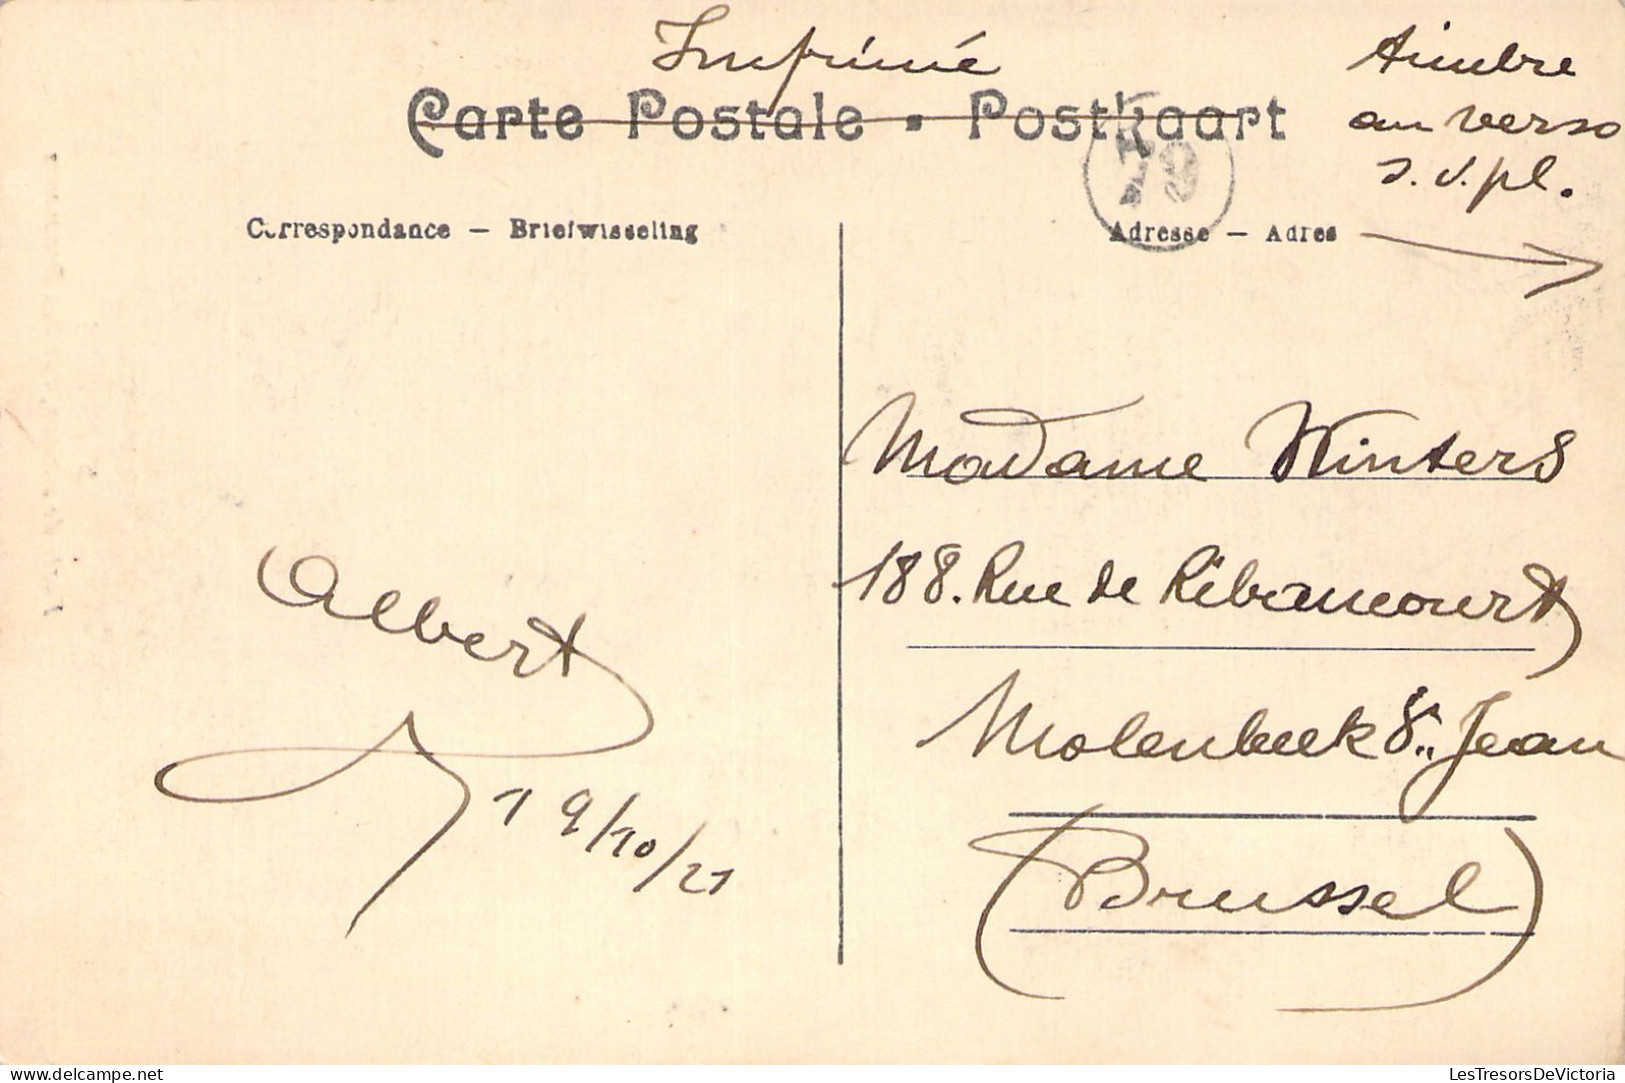 Imprimé
timbre
au verso
s. v. pl.
Carte Postale - Postkaart
79
Correspondance — Briefwisseling
Adresse — Adres
Madame Winters
188. Rue de Ribaucourt
Molenbeek S.. Jean
(Brussel)
Albert
19/10/21
LesTresorsDeVictoria